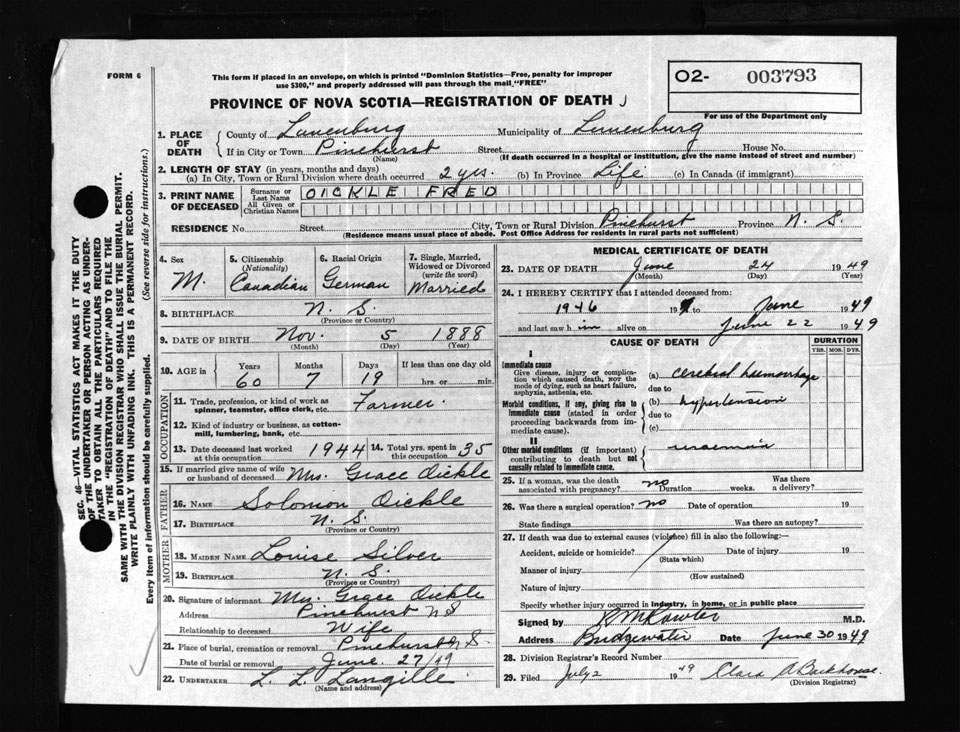 FORM 6
This form if placed in an envelope, on which is printed "Dominion Statistics—Free, penalty for improper
use $300," and properly addressed will pass through the mail "FREE"
O2- 003793
For use of the Department only
PROVINCE OF NOVA SCOTIA—REGISTRATION OF DEATH
1. PLACE OF DEATH
County of Lunenburg Municipality of Lunenburg
If in City or Town Pinehurst Street House No.
(Name) (If death occurred in a hospital or institution, give the name instead of street and number)
2. LENGTH OF STAY (in years, months and days)
(a) In City, Town or Rural Division where death occurred 2 yrs. (b) In Province Life (c) In Canada (if immigrant)
3. PRINT NAME OF DECEASED
Surname or Last Name OICKLE FRED
All Given or Christian Names
RESIDENCE No. Street City, Town or Rural Division Pinehurst Province N. S.
(Residence means usual place of abode. Post Office Address for residents in rural parts not sufficient)
4. Sex M.
5. Citizenship (Nationality) Canadian
6. Racial Origin German
7. Single, Married, Widowed or Divorced (write the word) Married
8. BIRTHPLACE N. S.
(Province or Country)
9. DATE OF BIRTH Nov. 5 1888
(Month) (Day) (Year)
10. AGE in Years 60 Months 7 Days 19 If less than one day old hrs. or min.
OCCUPATION
11. Trade, profession, or kind of work as
spinner, teamster, office clerk, etc. Farmer.
12. Kind of industry or business, as cotton-
mill, lumbering, bank, etc.
13. Date deceased last worked at this occupation 1944 14. Total yrs. spent in this occupation 35
15. If married give name of wife or husband of deceased Mrs. Grace Oickle
FATHER
16. NAME Solomon Oickle
17. BIRTHPLACE N. S.
(Province or Country)
MOTHER
18. MAIDEN NAME Louise Silver
19. BIRTHPLACE N. S.
(Province or Country)
20. Signature of informant Mrs. Grace Oickle
Address Pinehurst NS
Relationship to deceased Wife
21. Place of burial, cremation or removal Pinehurst N S.
Date of burial or removal June 27/49
22. UNDERTAKER L. L. Langille.
(Name and address)
MEDICAL CERTIFICATE OF DEATH
23. DATE OF DEATH June 24 1949
(Month) (Day) (Year)
24. I HEREBY CERTIFY that I attended deceased from:
1946 19 to June 1949
and last saw him alive on June 22 1949
CAUSE OF DEATH
DURATION
YRS. MOS. DYS.
I
Immediate cause
Give disease, injury or complica-
tion which caused death, NOT the
mode of dying, such as heart failure,
asphyxia, asthenia, etc.
(a) Cerebral haemorrhage
due to
Morbid conditions, if any, giving rise to
immediate cause (stated in order
proceeding backwards from im-
mediate cause).
(b) hypertension
due to
(c)
II
Other morbid conditions (if important)
contributing to death but not
causally related to immediate cause.
uraemia
25. If a woman, was the death associated with pregnancy? no Duration weeks. Was there a delivery?
26. Was there a surgical operation? no Date of operation 19
State findings Was there an autopsy?
27. If death was due to external causes (violence) fill in also the following:
Accident, suicide or homicide? Date of injury 19
(State which)
Manner of injury
(How sustained)
Nature of injury
Specify whether injury occurred in industry, in home, or in public place
Signed by M.D.
Address Bridgewater Date June 30 1949
28. Division Registrar's Record Number
29. Filed July 2 1949 Clara A Backhouse
(Division Registrar)
SEC. 46—VITAL STATISTICS ACT MAKES IT THE DUTY
OF THE UNDERTAKER OR PERSON ACTING AS UNDER-
TAKER TO OBTAIN ALL THE PARTICULARS REQUIRED
IN THE "REGISTRATION OF DEATH" AND TO FILE THE
SAME WITH THE DIVISION REGISTRAR WHO SHALL ISSUE THE BURIAL PERMIT.
WRITE PLAINLY WITH UNFADING INK. THIS IS A PERMANENT RECORD.
Every item of information should be carefully supplied. (See reverse side for instructions.)